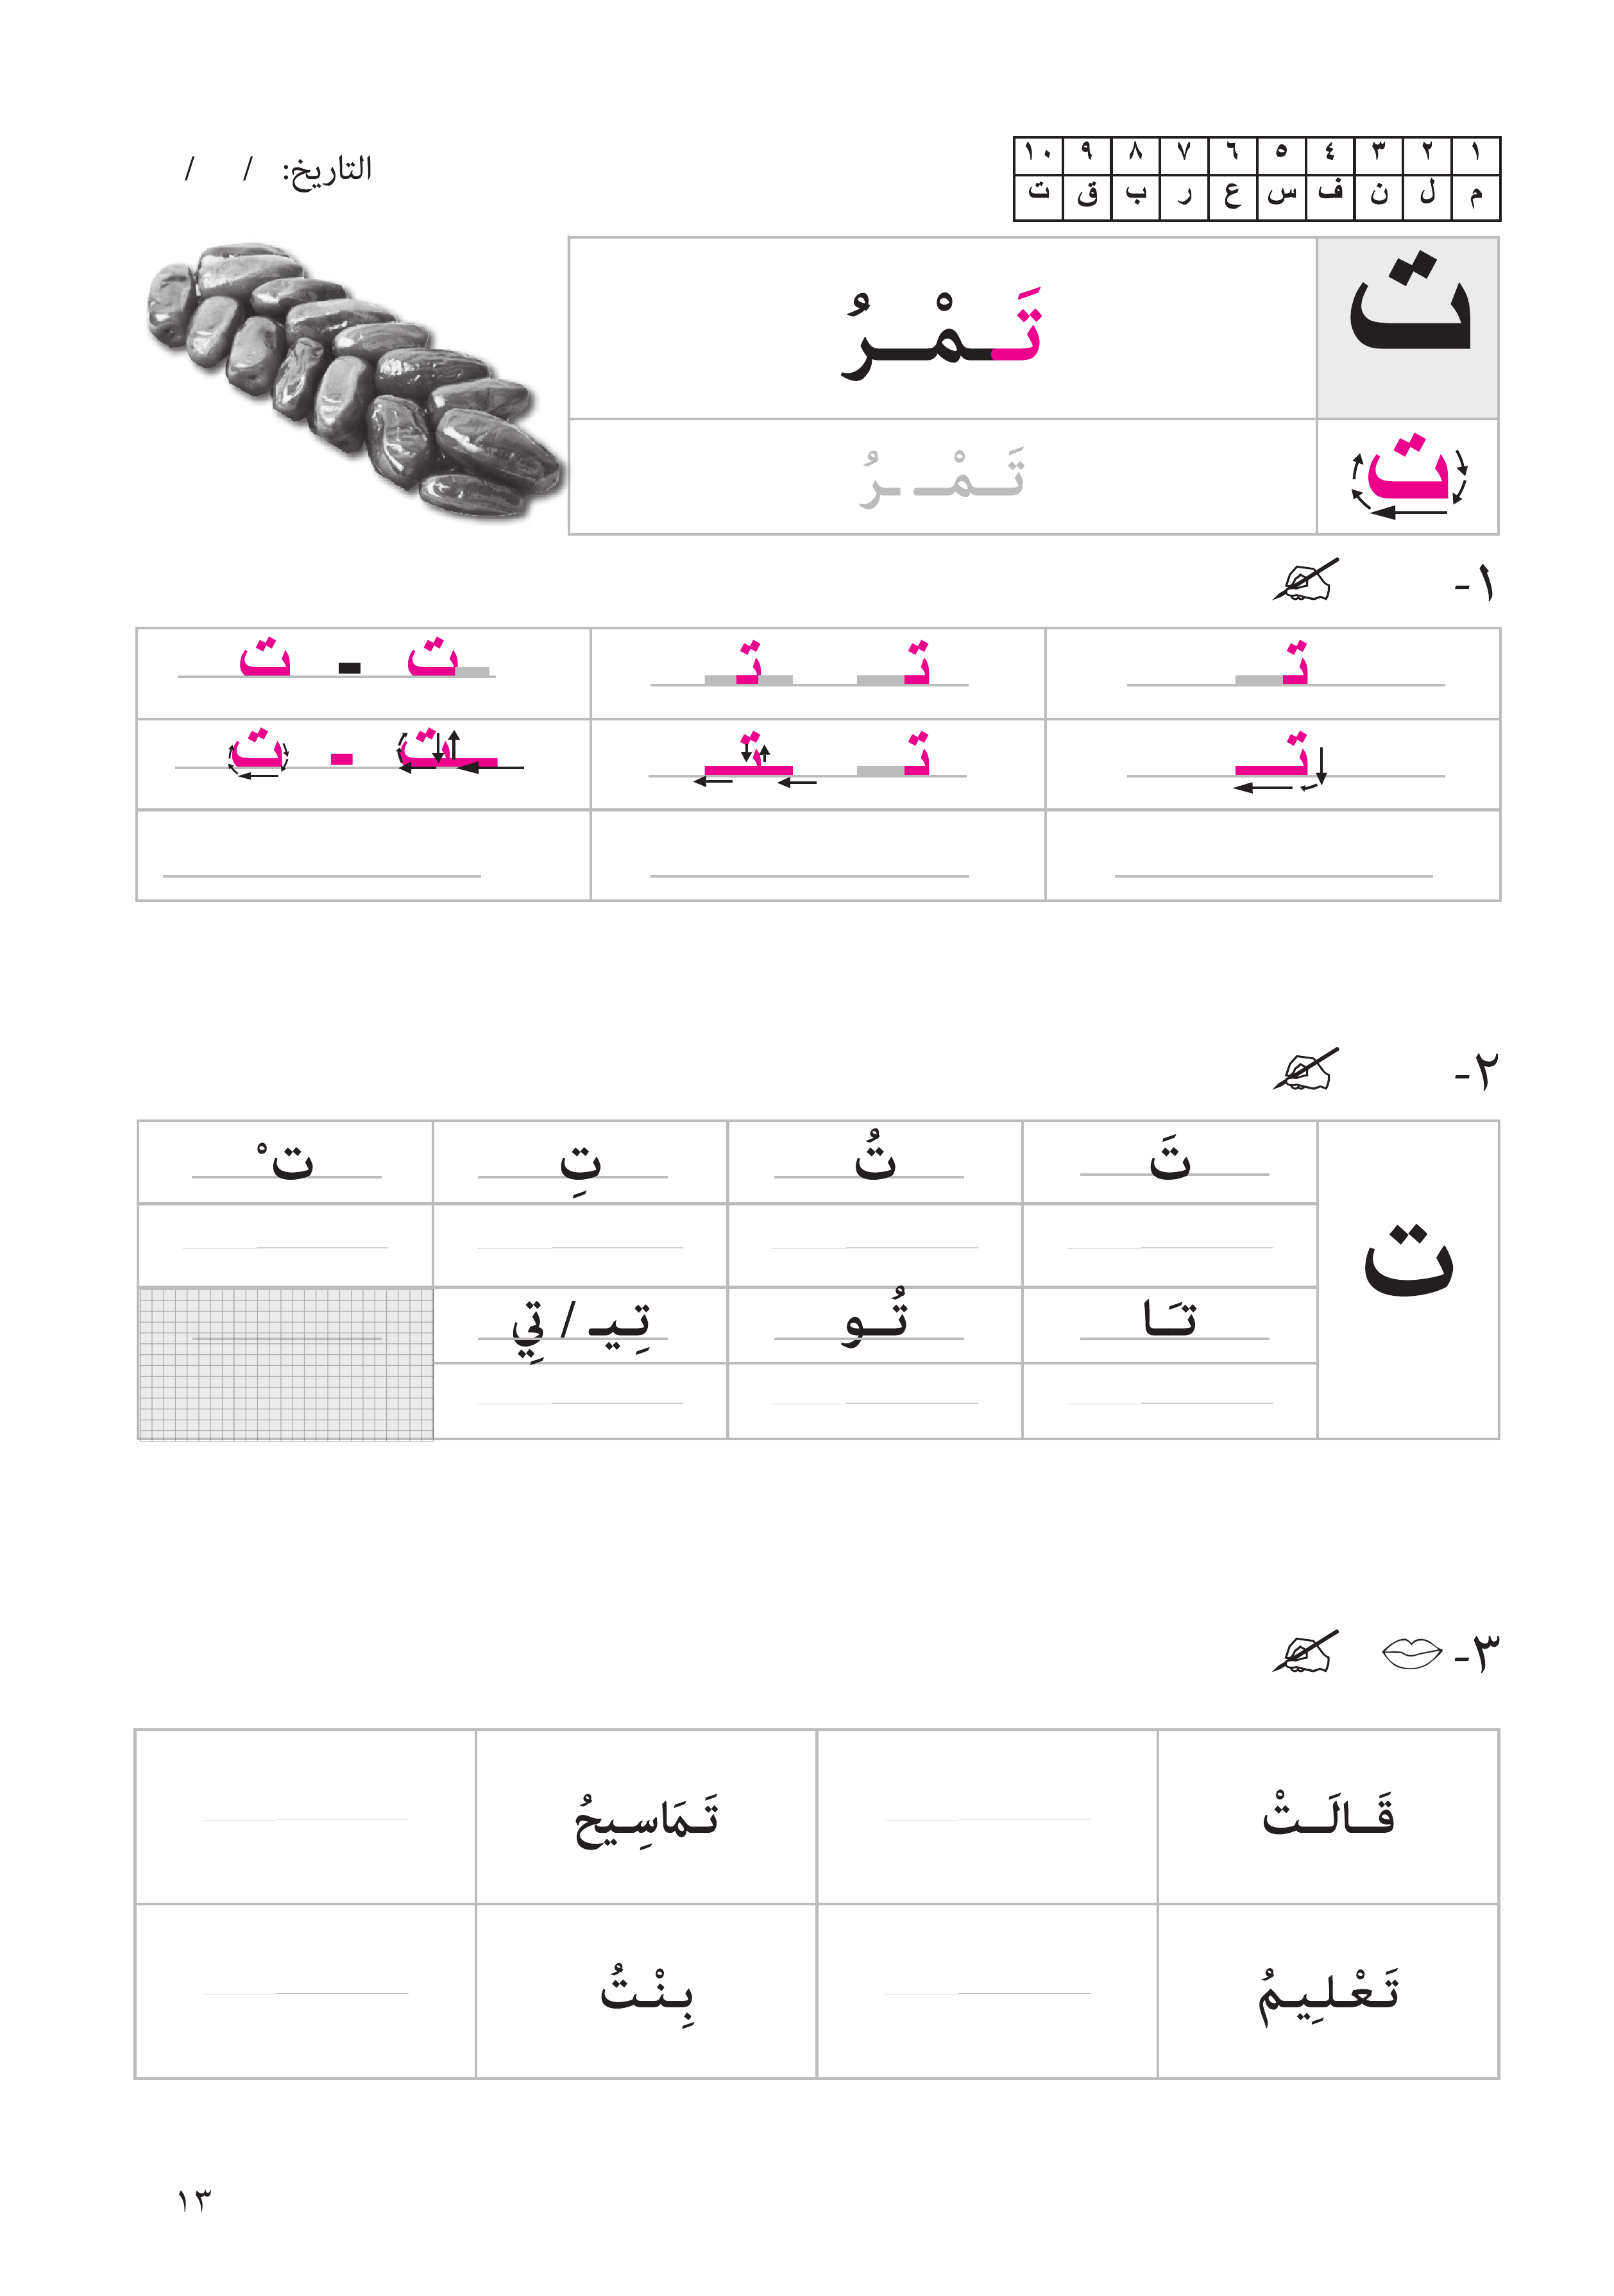 ١ ٢ ٣ ٤ ٥ ٦ ٧ ٨ ٩ ١٠
م ل ن ف س ع ر ب ق ت
التاريخ: / /
ت تَـمْـرُ
ت تَـمْـ ـرُ
١-
تـ تـ ـتـ ـت - ت
تـ تـ ـتـ ـت - ت
٢-
ت
تَ تُ تِ تْ
تَـا تُـو تِـيـ / تِي
٣-
قَـالَـتْ تَـمَاسِـيحُ
تَـعْـلِـيـمُ بِـنْـتُ
١٣